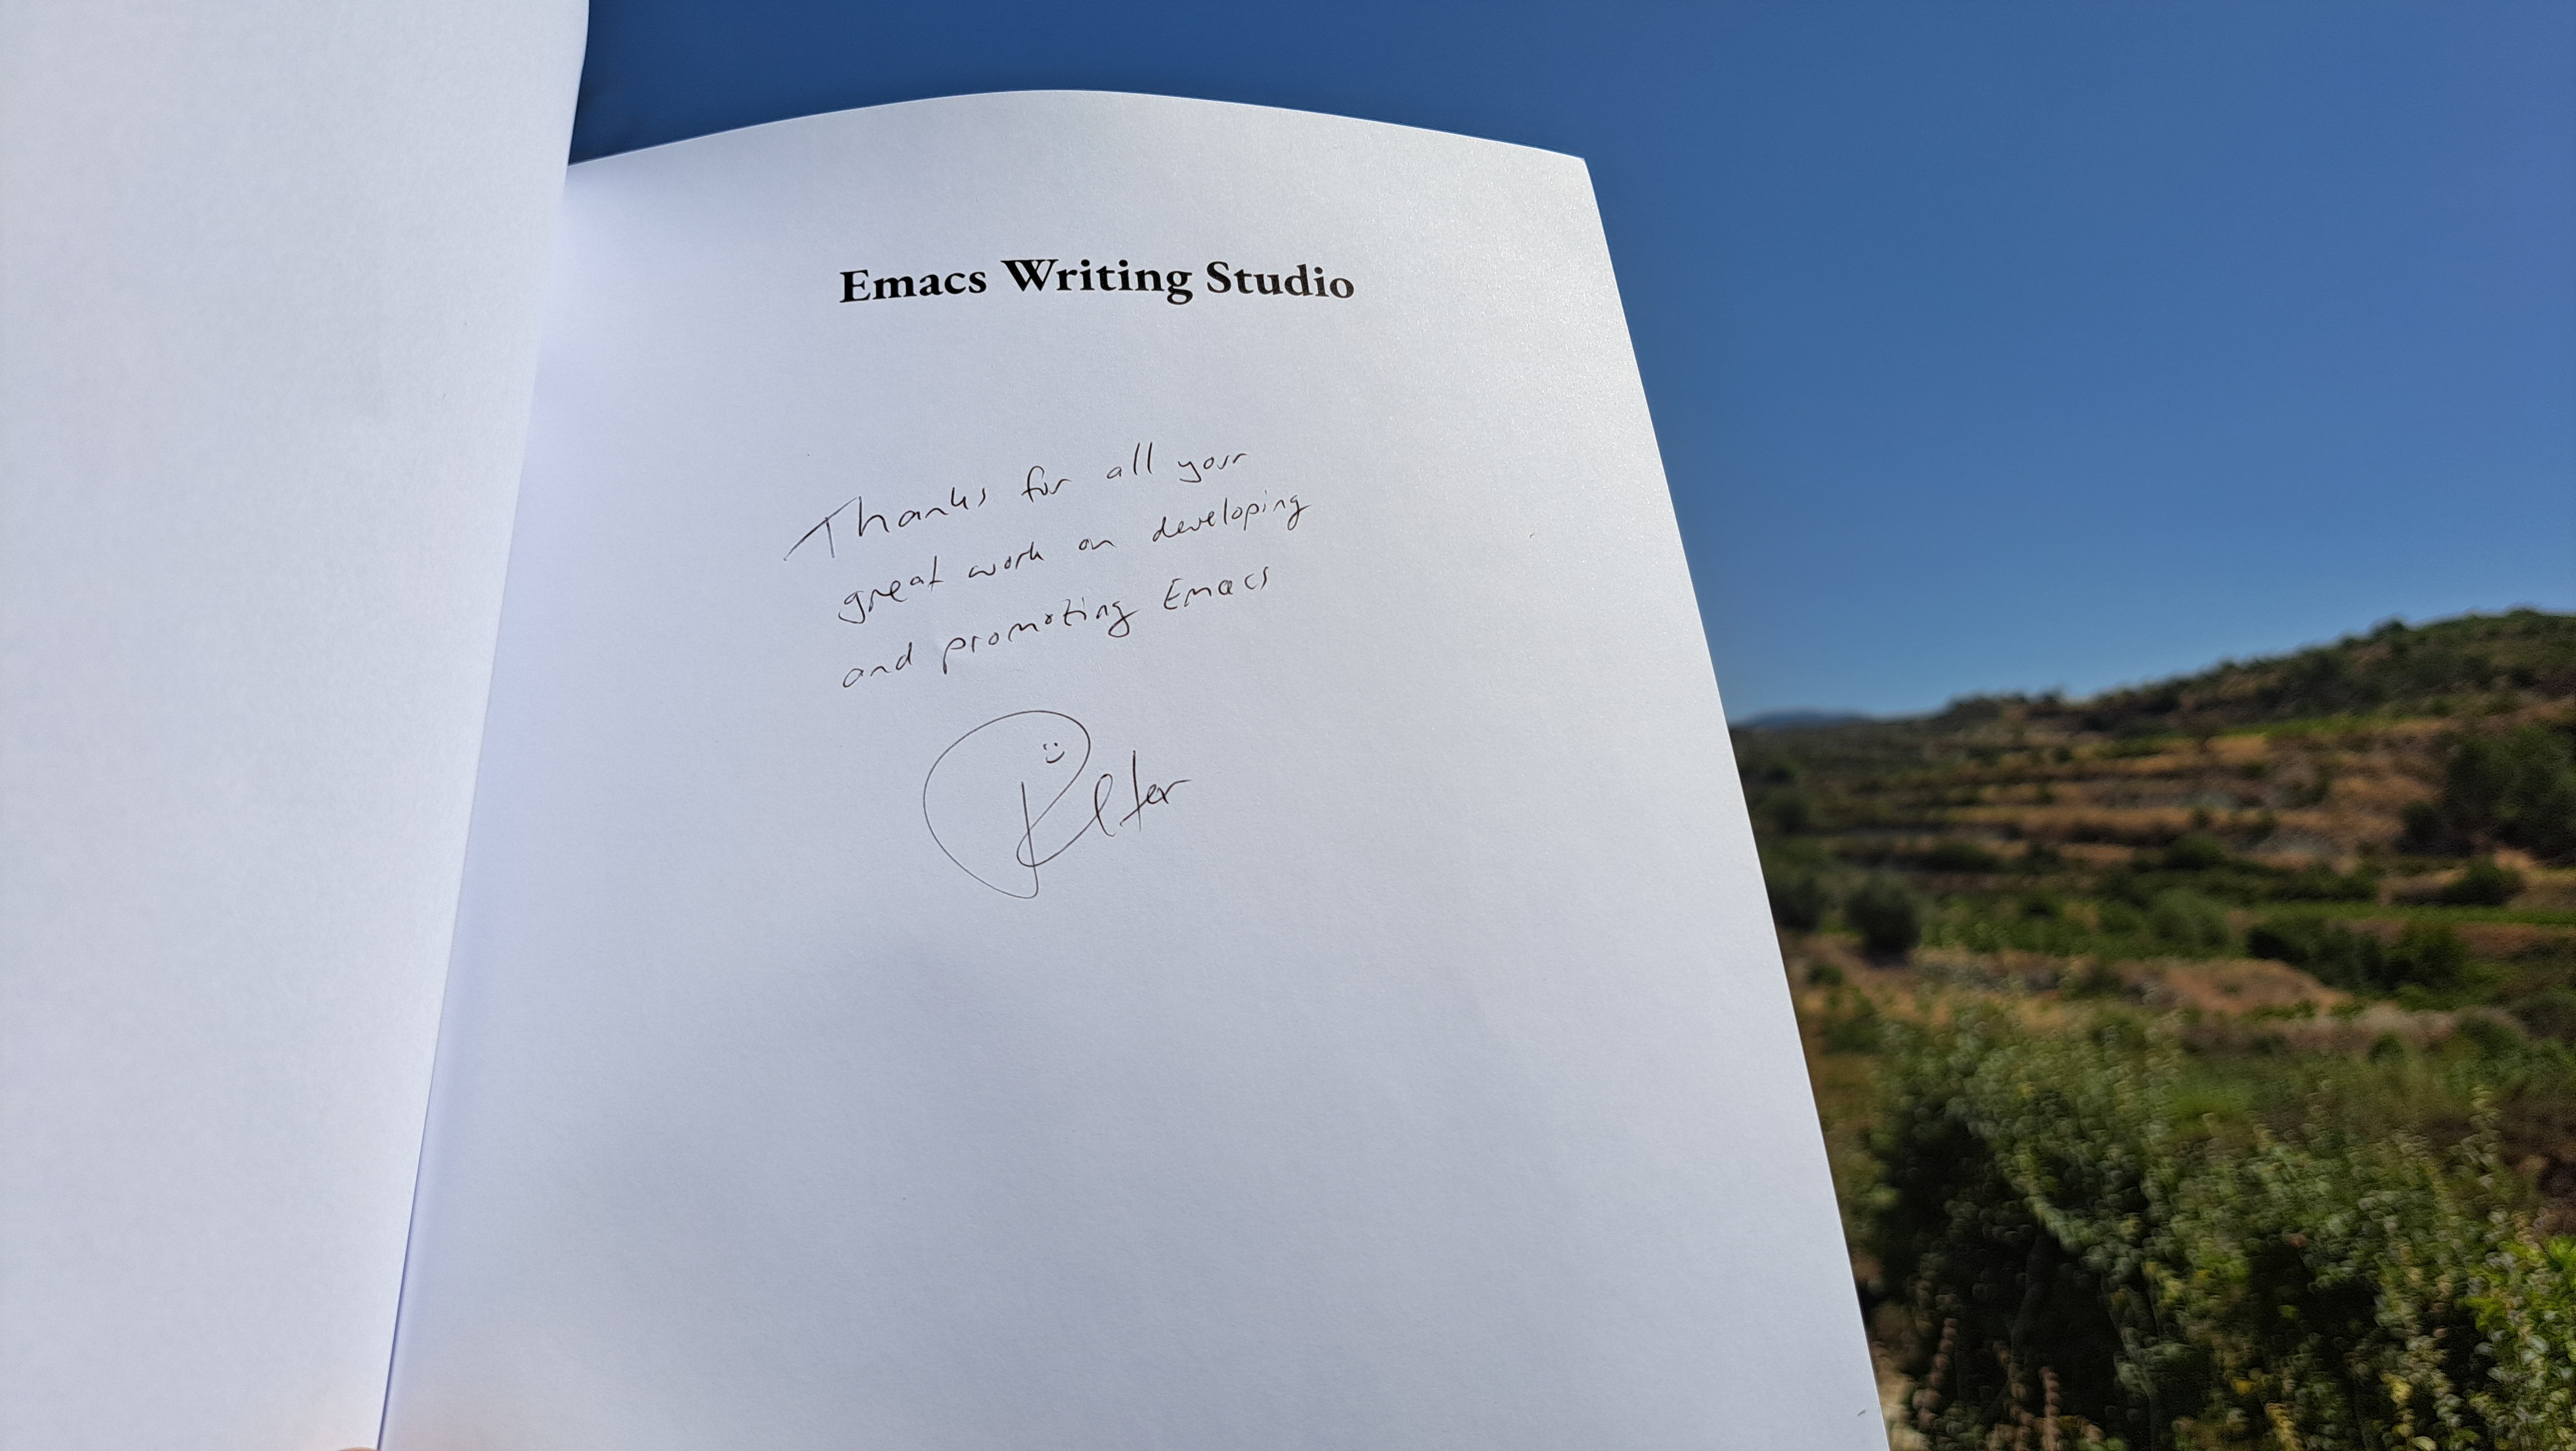 Emacs Writing Studio
Thanks for all your
great work on developing
and promoting Emacs
Peter